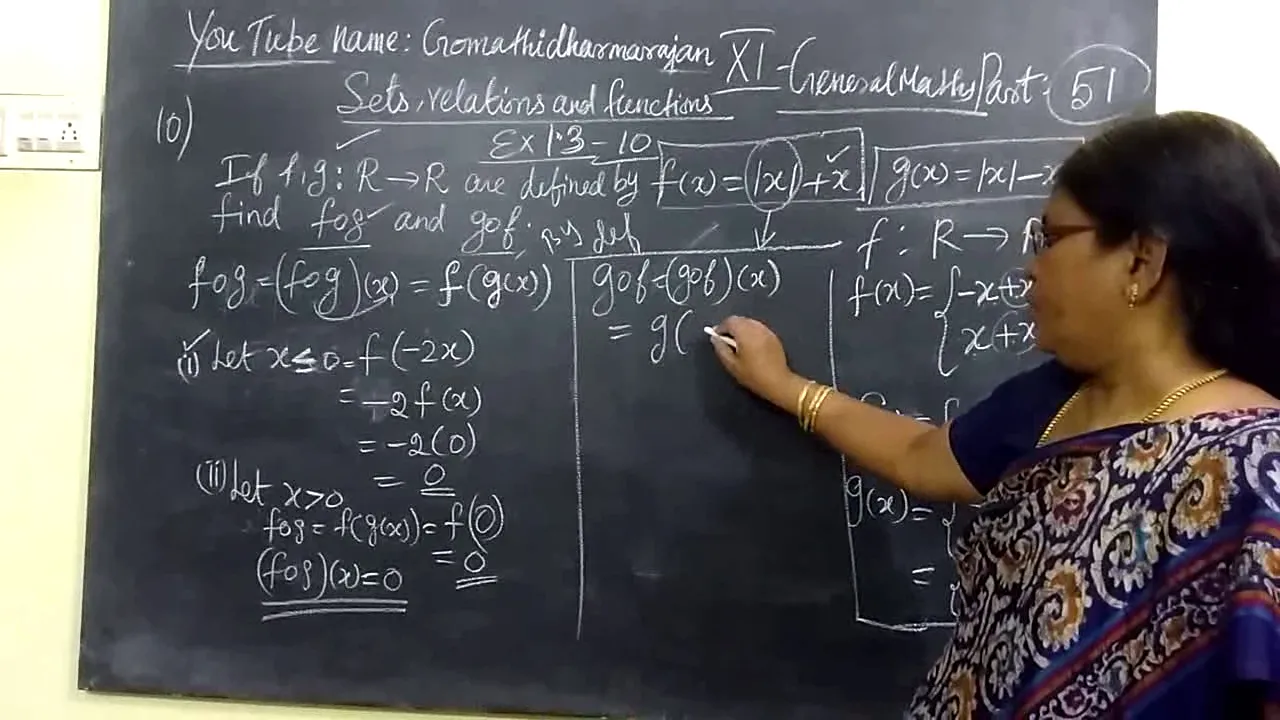 YouTube name: Gomathidharmarajan XI - General Maths Part: 51
Sets, relations and functions
Ex 1.3 - 10
10)
If f, g : R → R are defined by f(x) = |x| + x, g(x) = |x| - x
find fog and gof. by def
fog = (fog)(x) = f(g(x))
(i) Let x ≤ 0 = f(-2x)
= -2 f(x)
= -2(0)
= 0
(ii) Let x > 0
fog = f(g(x)) = f(0)
= 0
(fog)(x) = 0
gof = (gof)(x)
= g(
f : R →
f(x) = { -x + x
{ x + x
g(x) = {
=